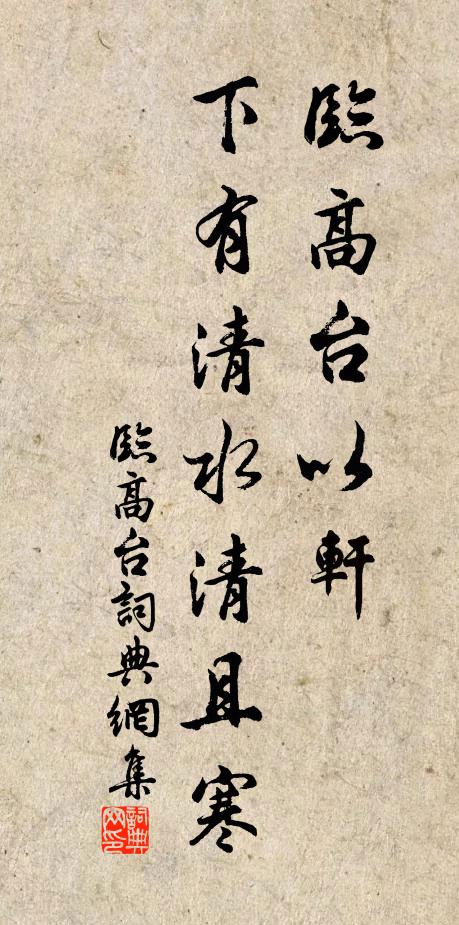 臨高台以軒
下有清水清且寒
臨高台詞典網集
詞典网印